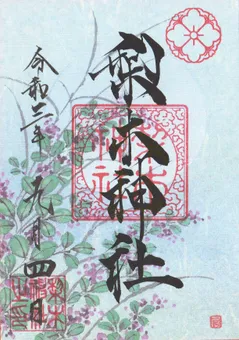 梨木神社
令和二年
九月四日